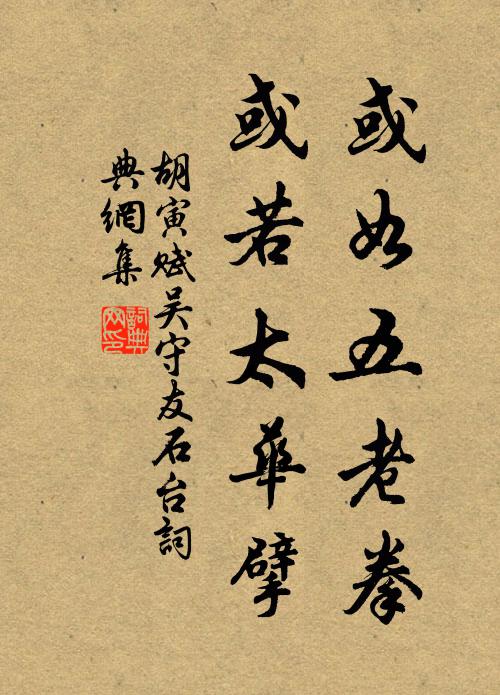 或如五老拳
或若太華擘
胡寅赋吴守友石台詞
典網集
詞典網印